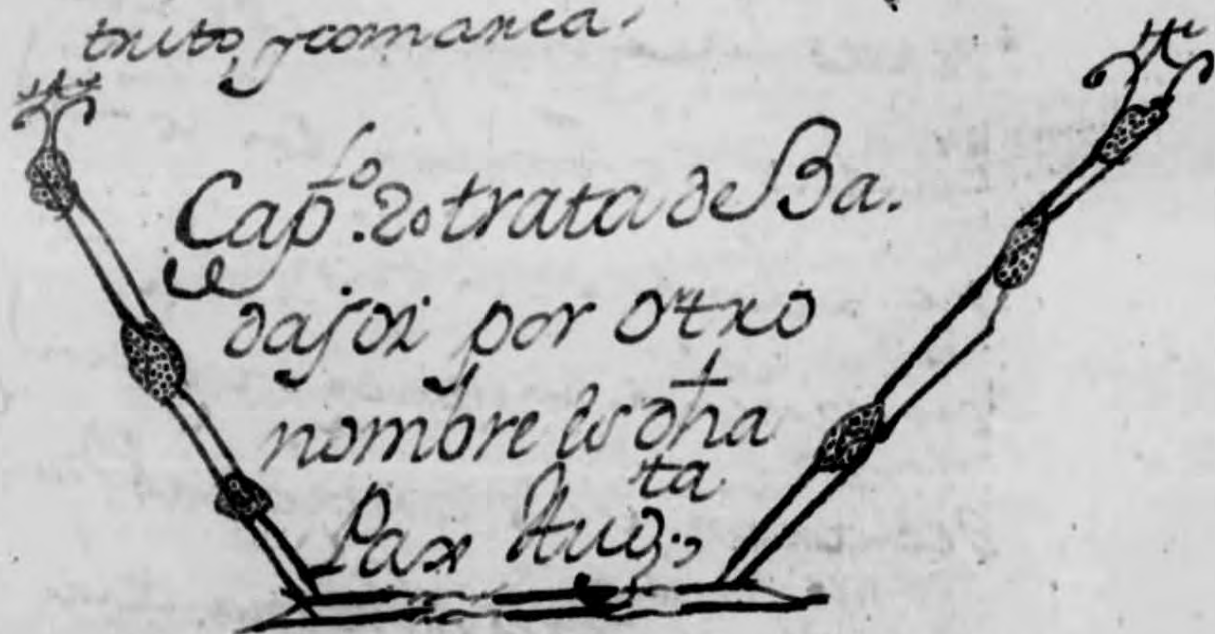 trito, y comarca.
Capᵗᵒ. 2º trata de Ba-
dajoz por otro
nombre es dha
Pax Augᵗᵃ.